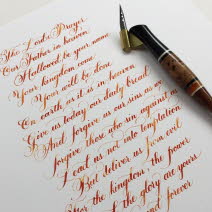 The Lord's Prayer
Our Father in heaven
Hallowed be your name
Your kingdom come
Your will be done
On earth, as it is in heaven
Give us today our daily bread
And forgive us our sins as we
forgive those who sin against us
Lead us not into temptation
But deliver us from evil
For the kingdom, the power
the glory are yours
and forever